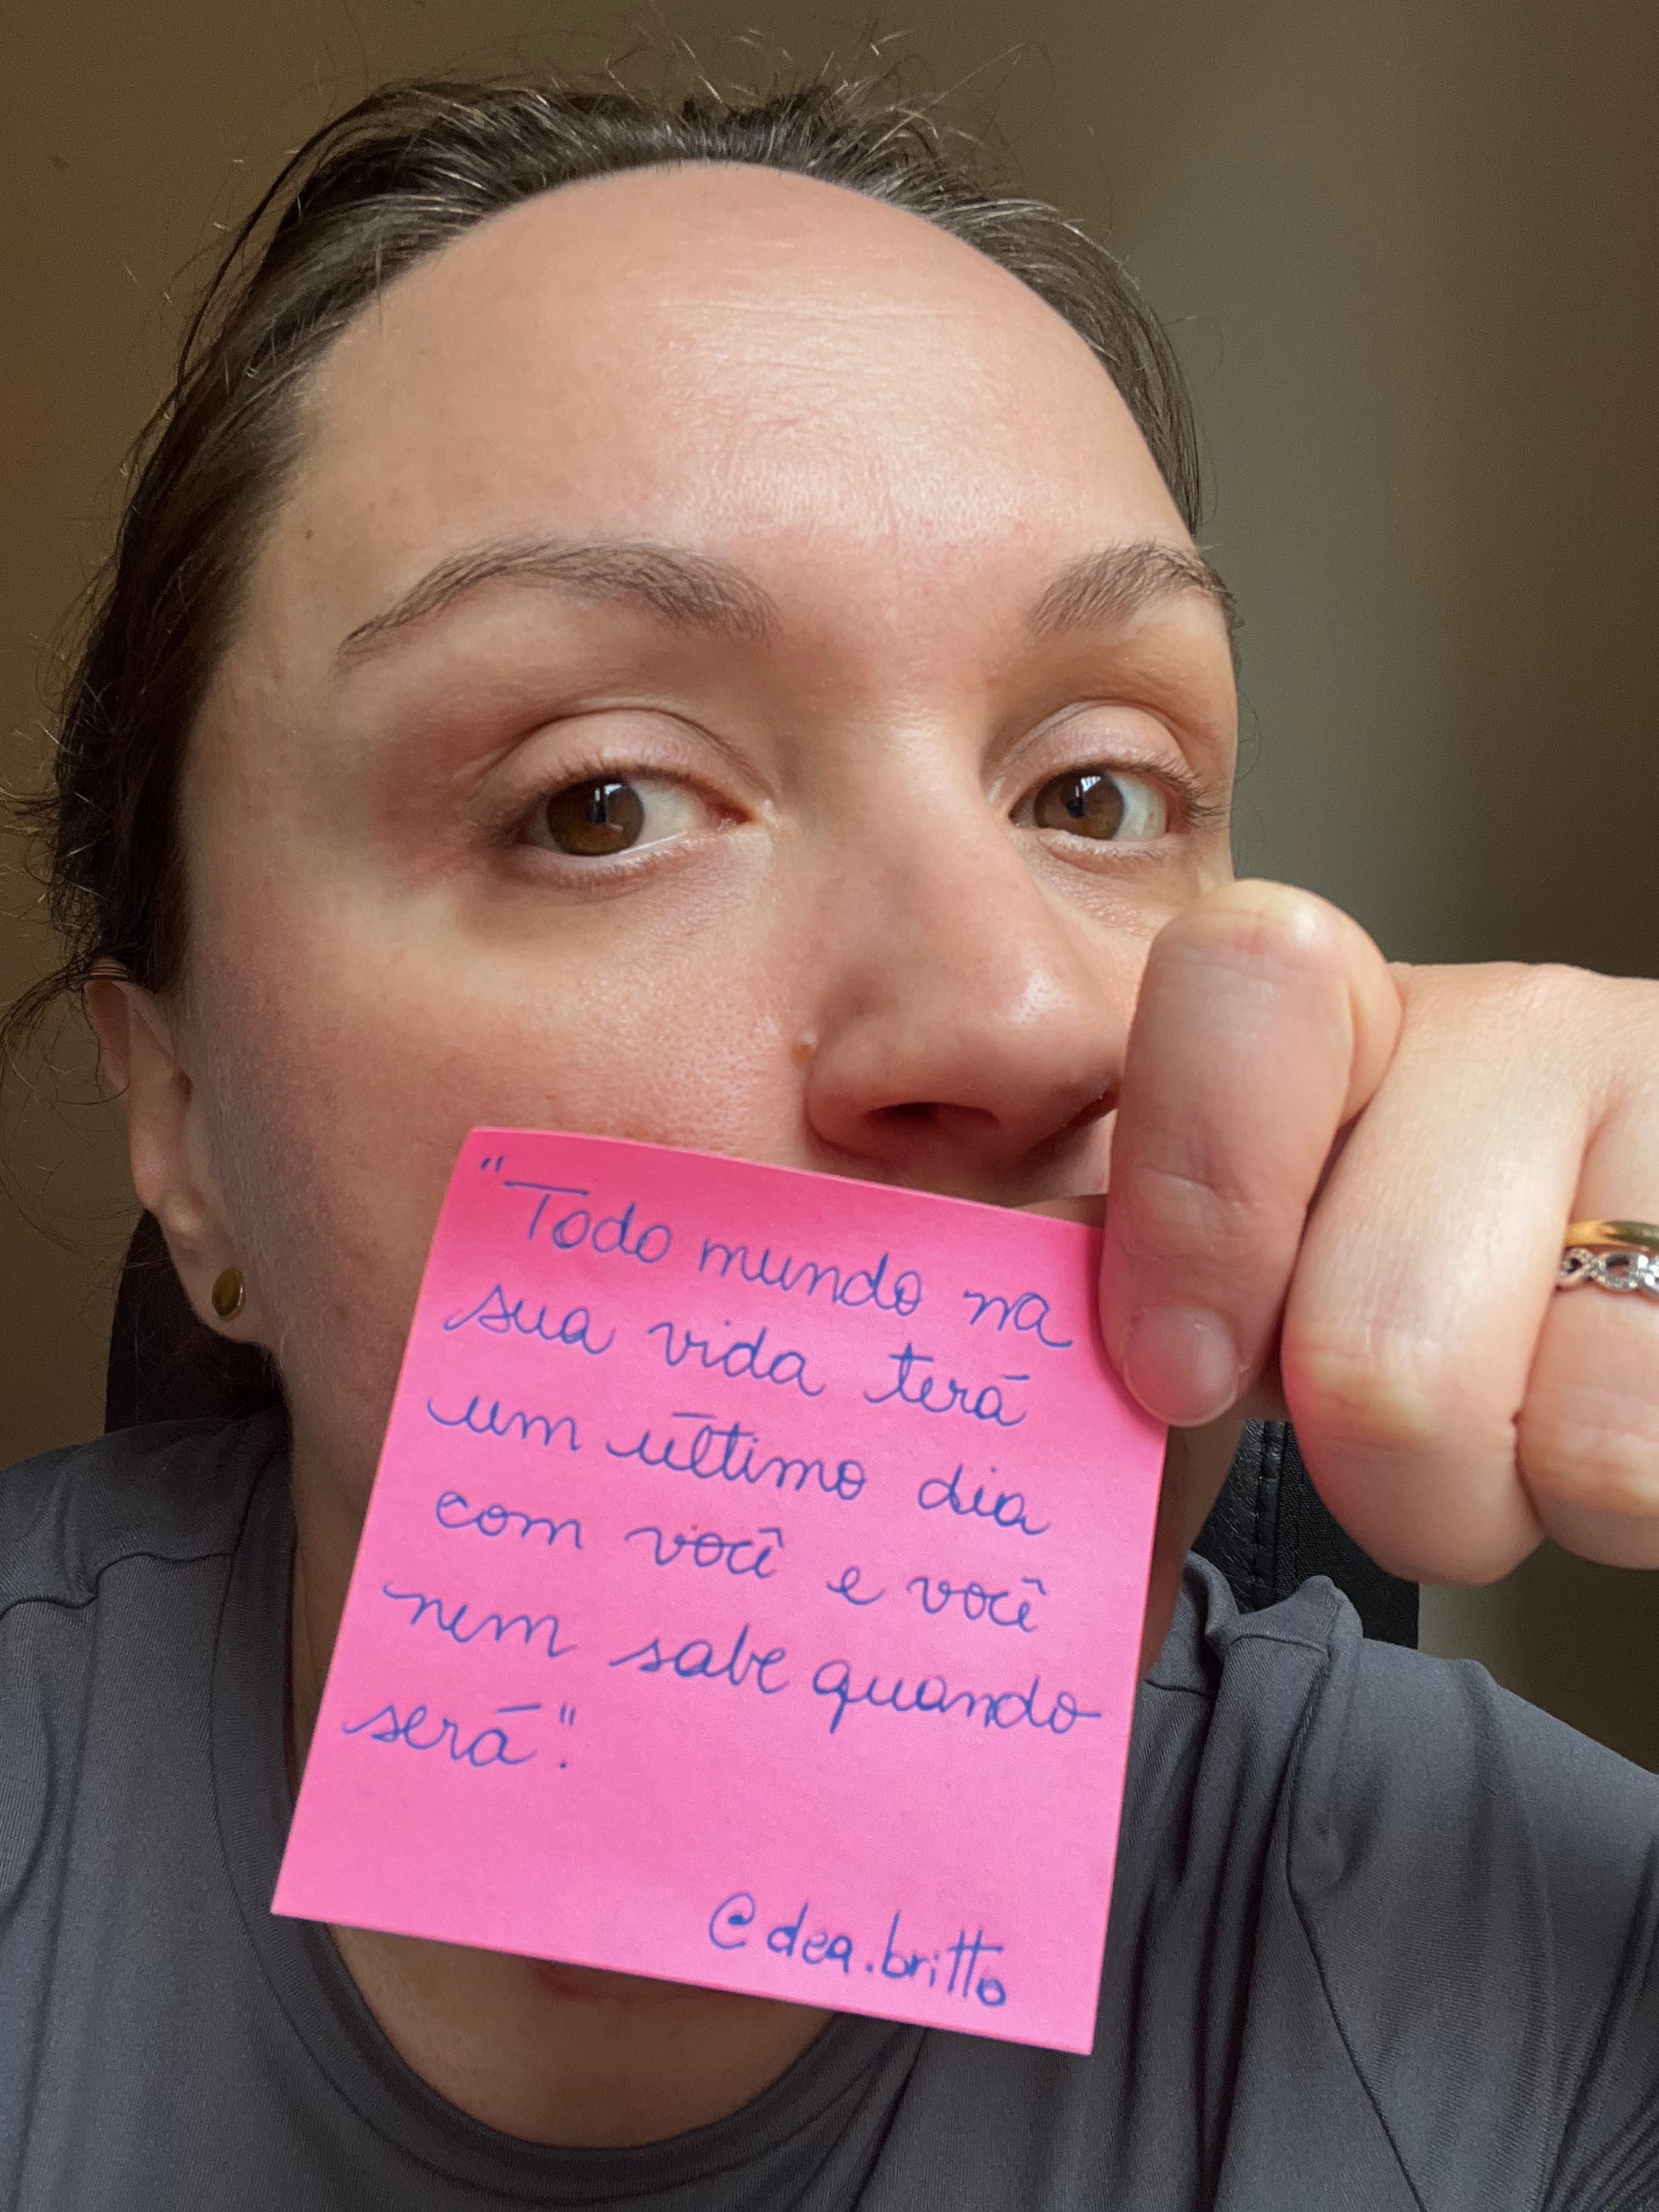 "Todo mundo na
sua vida terá
um último dia
com você e você
nem sabe quando
será".
@dea.britto